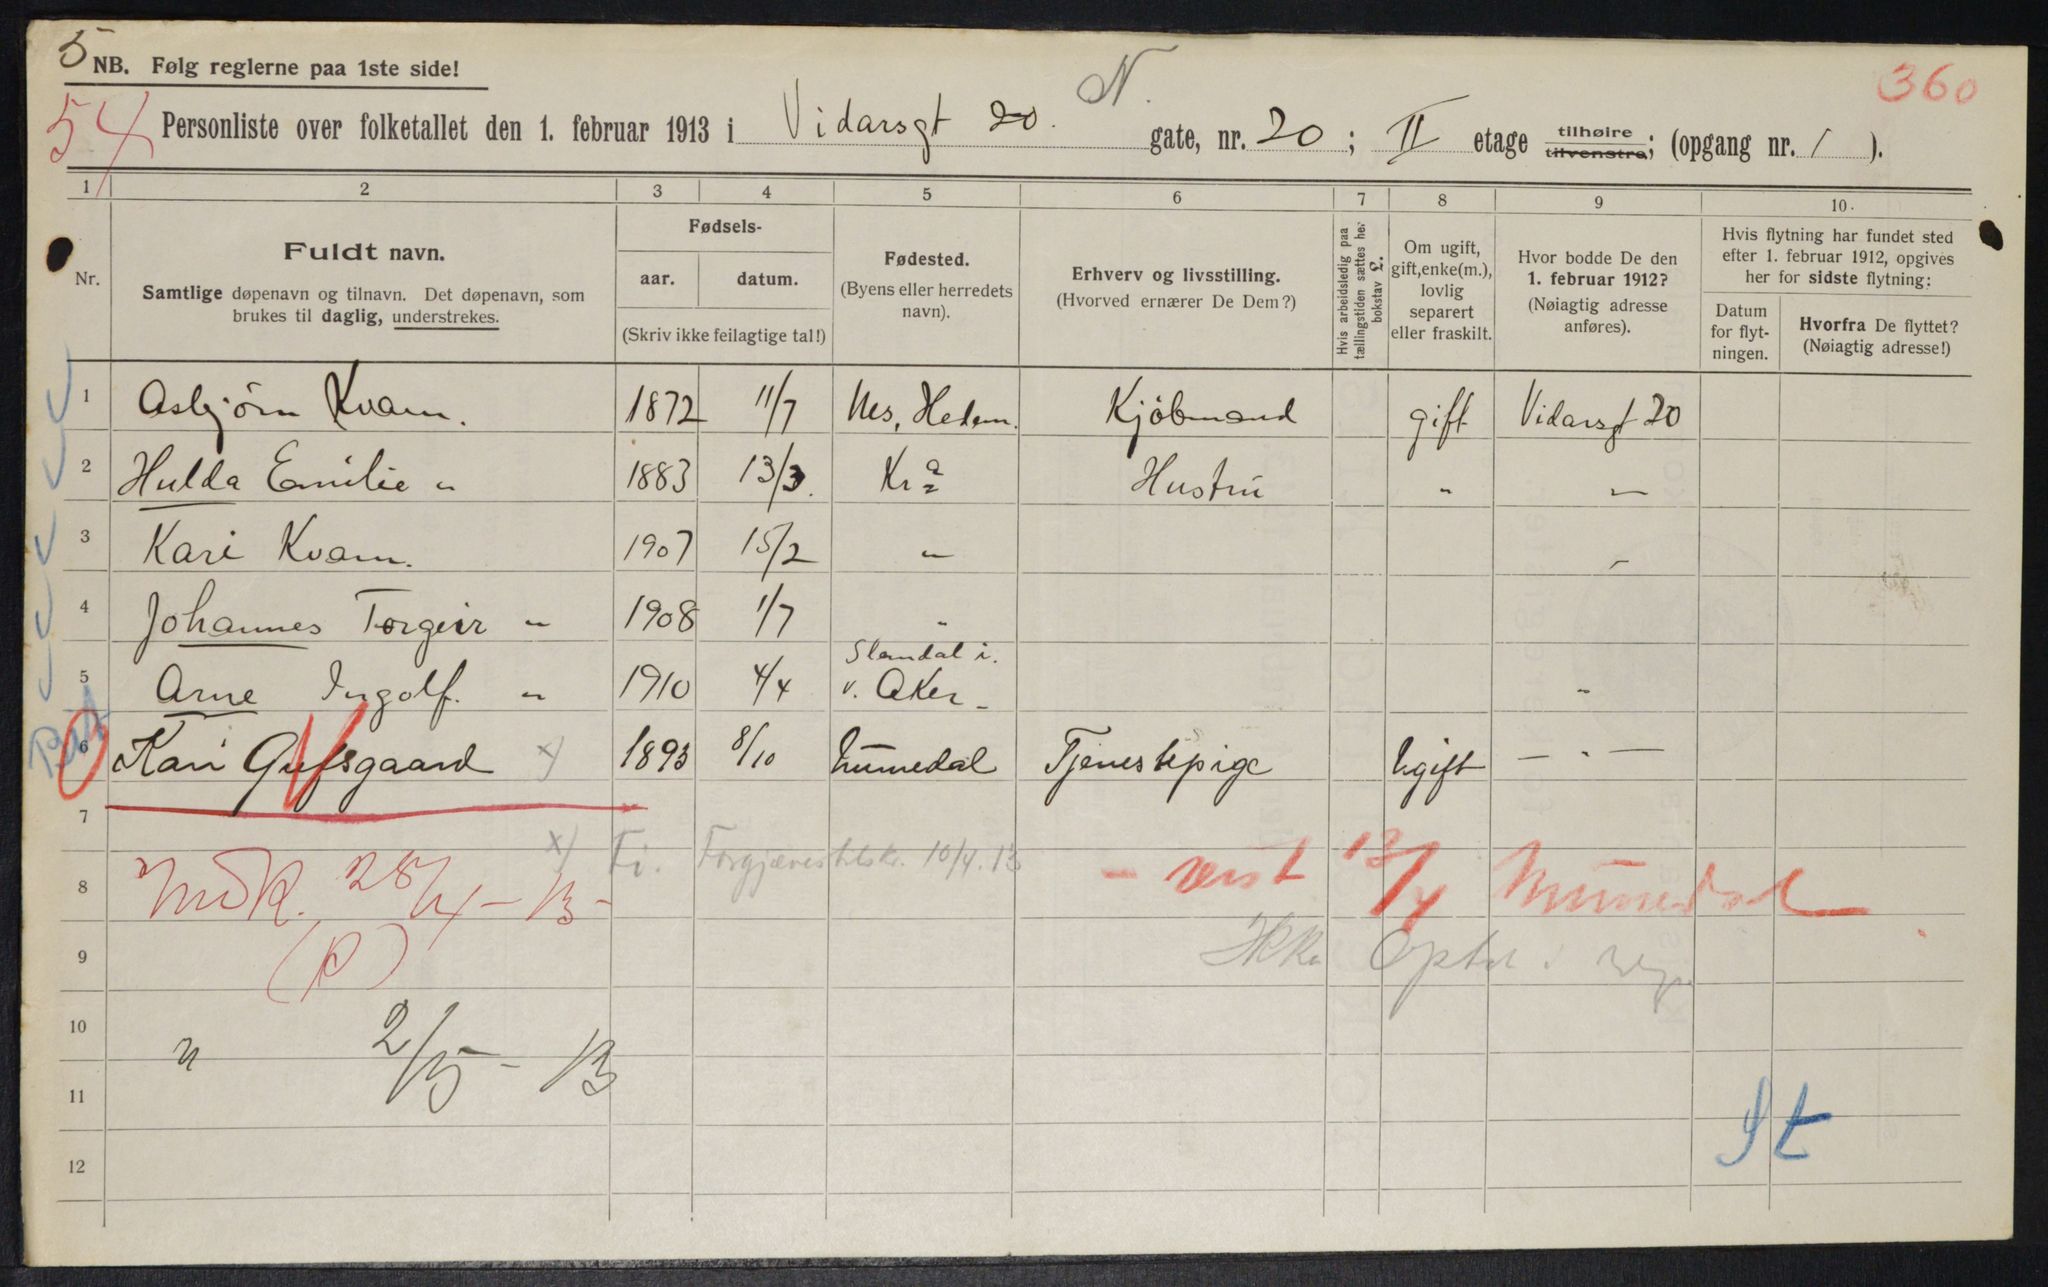 5
NB. Følg reglerne paa 1ste side!
N.
360
54
Personliste over folketallet den 1. februar 1913 i Vidarsgt 20. gate, nr. 20 ; II etage tilhøire tilvenstre; (opgang nr. 1 ).
1 2 3 4 5 6 7 8 9 10.
Nr.
Fuldt navn.
Samtlige døpenavn og tilnavn. Det døpenavn, som
brukes til daglig, understrekes.
Fødsels-
aar. datum.
(Skriv ikke feilagtige tal!)
Fødested.
(Byens eller herredets
navn).
Erhverv og livsstilling.
(Hvorved ernærer De Dem?)
Hvis arbeidsledig paa
tællingstiden sættes her
bokstav L.
Om ugift,
gift, enke(m.),
lovlig
separert
eller fraskilt.
Hvor bodde De den
1. februar 1912?
(Nøiagtig adresse
anføres).
Hvis flytning har fundet sted
efter 1. februar 1912, opgives
her for sidste flytning:
Datum
for flyt-
ningen.
Hvorfra De flyttet?
(Nøiagtig adresse!)
1 Asbjørn Kvam. 1872 11/7 Nes, Hedem. Kjöbmand gift Vidarsgt 20
2 Hulda Emilie " 1883 13/3. Kra Hustru " "
3 Kari Kvam. 1907 15/2 " "
4 Johannes Torgeir " 1908 1/7 "
5 Arne Ingolf. " 1910 4/4 Slemdal i. v. Aker "
6 Kari 1893 8/10 Numedal Tjenestepige Ugift — " —
7
x) Fi. 10/4. 13
8 28/4 - 13 - - reist 12/4 Numedal
9 Ikke
(P)
10
" 2/5 - 13
11
12
St